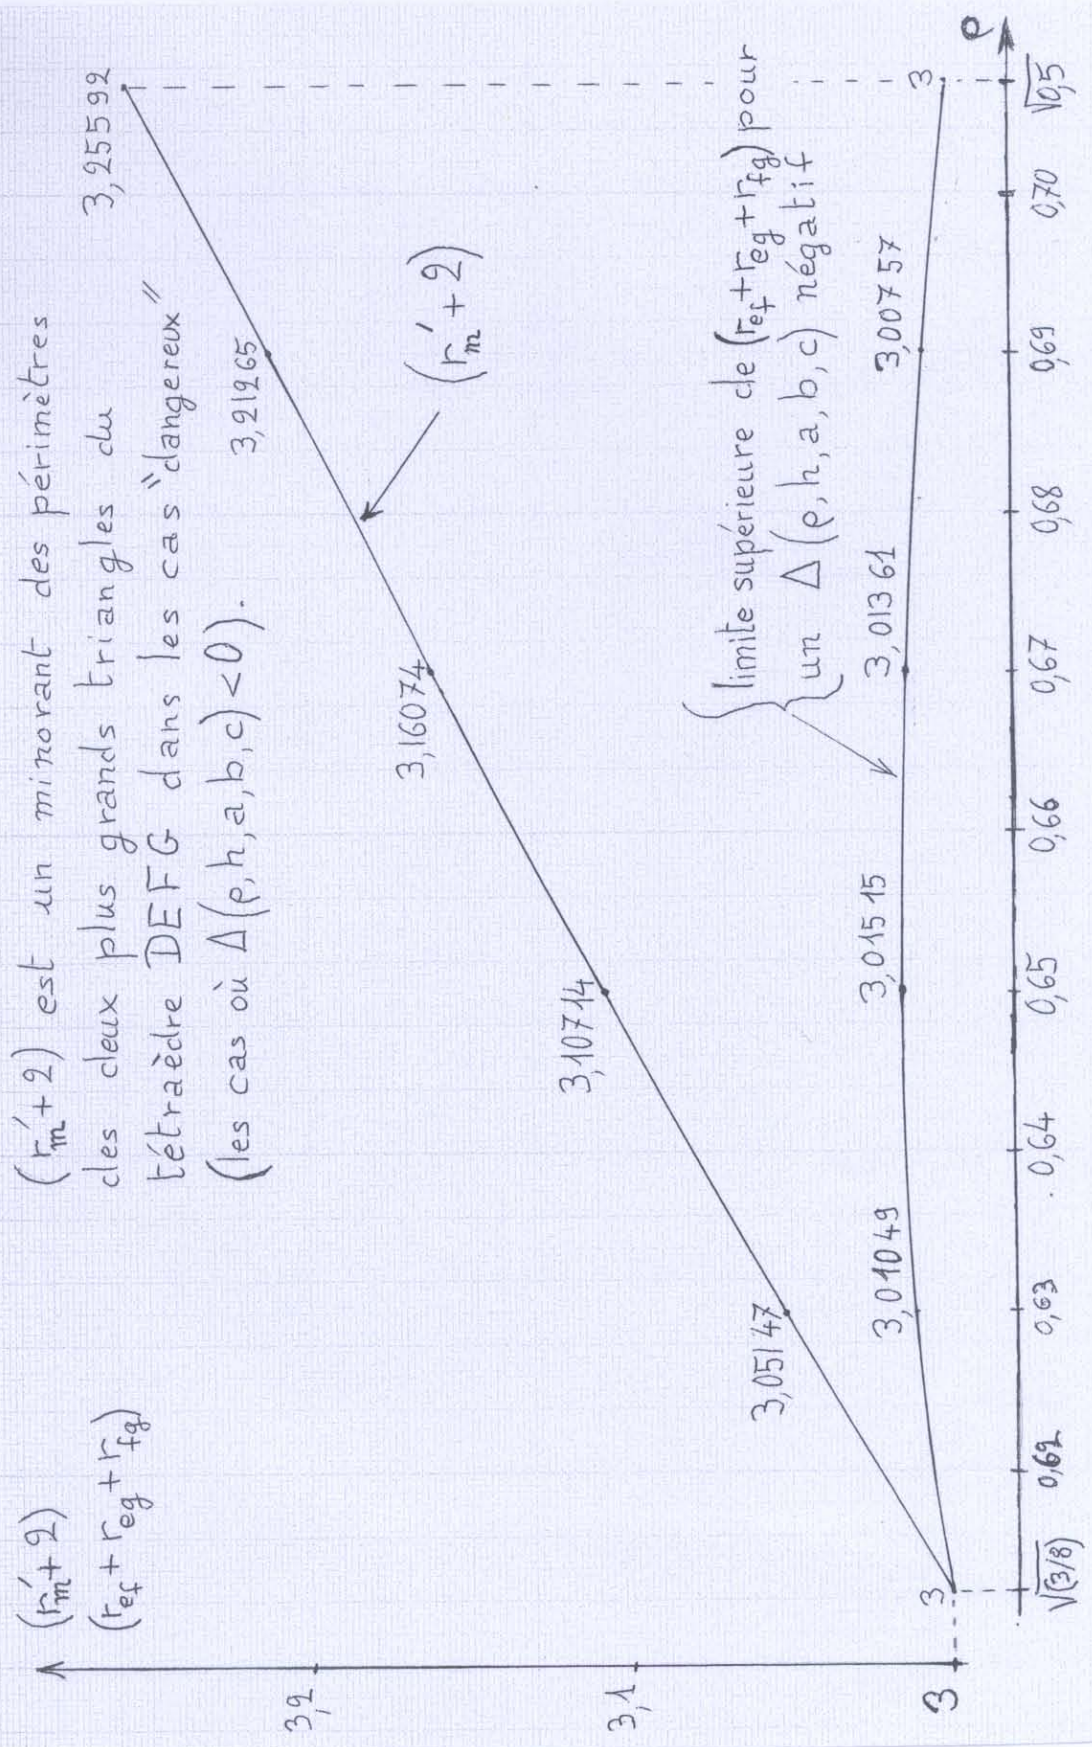 (r'm + 2)
(ref + reg + rfg)
(r'm + 2) est un minorant des périmètres
des deux plus grands triangles du
tétraèdre DEFG dans les cas "dangereux"
(les cas où Δ(ρ, h, a, b, c) < 0).
3,255592
3,21265
3,16074
3,10714
3,05147
(r'm + 2)
limite supérieure de (ref + reg + rfg) pour
un Δ(ρ, h, a, b, c) négatif
3
3,01049
3,01515
3,01361
3,00757
3
3,2
3,1
3
√(3/8)
0,62
0,63
0,64
0,65
0,66
0,67
0,68
0,69
0,70
√0,5
ρ